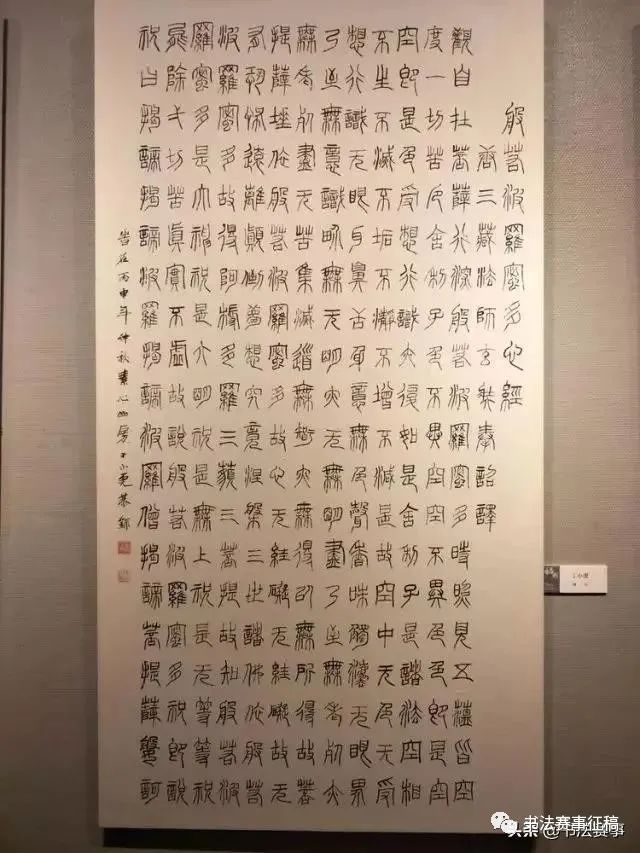 般若波羅蜜多心經
唐三藏法師玄奘奉詔譯
觀自在菩薩行深般若波羅蜜多時照見五蘊皆空
度一切苦厄舍利子色不異空空不異色色即是空
空即是色受想行識亦復如是舍利子是諸法空相
不生不滅不垢不淨不增不減是故空中无色无受
想行識无眼耳鼻舌身意無色聲香味觸法无眼界
乃至無意識界無无明亦无無明盡乃至無老死亦
無老死盡无苦集滅道無智亦無得以無所得故菩
提薩埵依般若波羅蜜多故心无罣礙无罣礙故无
有恐怖遠離顛倒夢想究竟涅槃三世諸佛依般若
波羅蜜多故得阿耨多羅三藐三菩提故知般若波
羅蜜多是大神祝是大明祝是無上祝是无等等祝
能除一切苦真實不虛故說般若波羅蜜多祝即說
祝曰揭諦揭諦波羅揭諦波羅僧揭諦菩提薩婆訶
丙申年仲秋素心丁小恭錄
丁小
书法赛事征稿
头条@书法赛事